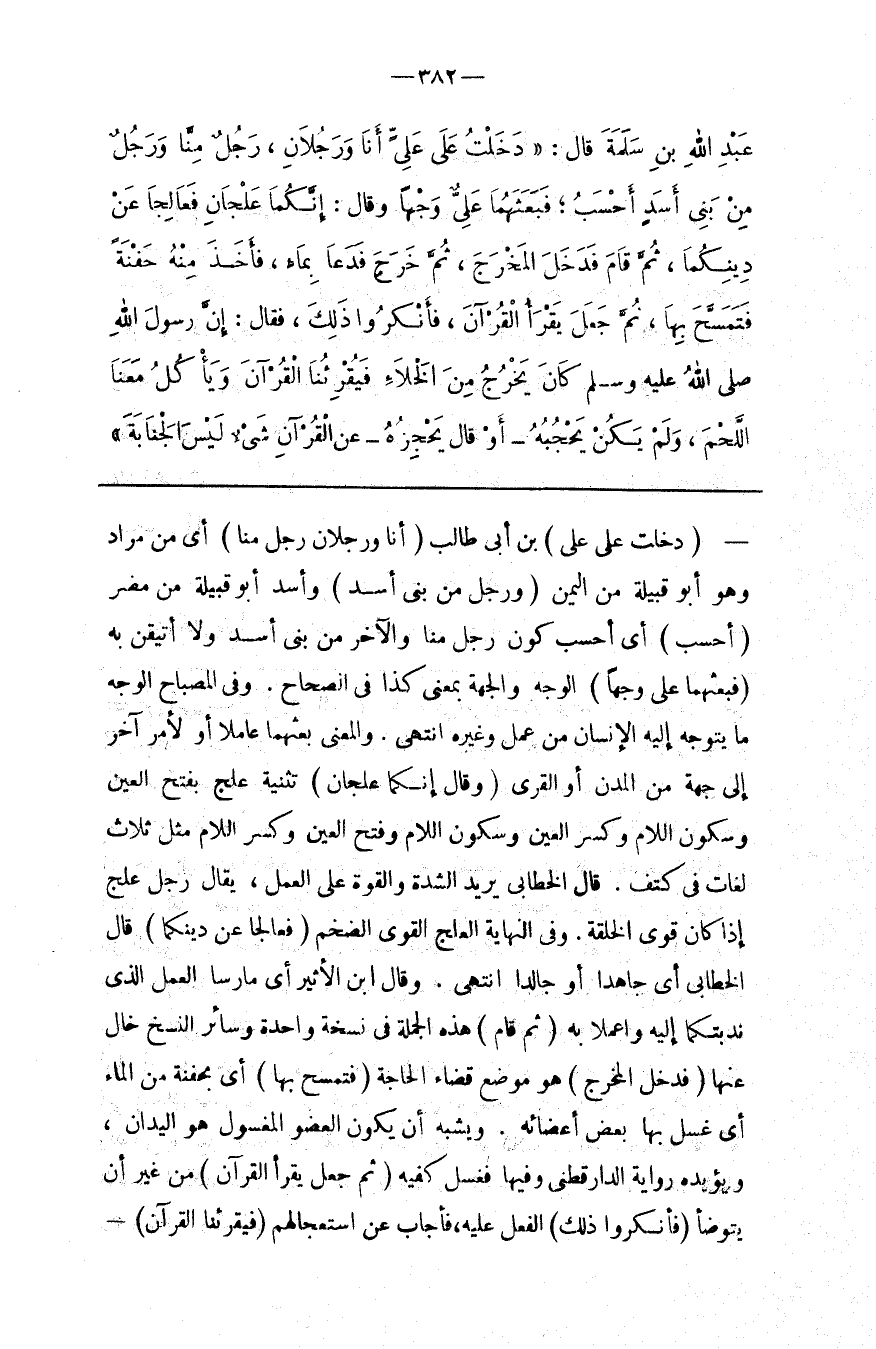 —٣٨٢—
عَبْدِ اللهِ بنِ سَلَمَةَ قال : « دَخَلْتُ عَلَى عَلِيٍّ أَنَا وَرَجُلَانِ ، رَجُلٌ مِنَّا وَرَجُلٌ
مِنْ بَنِى أَسَدٍ أَحْسَبُ ؛ فَبَعَثَهُمَا عَلِيٌّ وَجْهًا وقال : إِنَّكُمَا عَلْجَانِ فَعَالِجَا عَنْ
دِينِكُمَا ، ثُمَّ قَامَ فَدَخَلَ المَخْرَجَ ، ثُمَّ خَرَجَ فَدَعَا بِمَاءٍ ، فَأَخَذَ مِنْهُ حَفْنَةً
فَتَمَسَّحَ بِهَا ، ثُمَّ جَعَلَ يَقْرَأُ الْقُرْآنَ ، فأَنْكَرُوا ذَلِكَ ، فقال : إِنَّ رسولَ اللهِ
صلى اللهُ عليه وسلم كَانَ يَخْرُجُ مِنَ الْخَلَاءِ فَيُقْرِئُنَا الْقُرْآنَ وَيَأْكُلُ مَعَنَا
اللَّحْمَ ، وَلَمْ يَكُنْ يَحْجُبُهُ – أَوْ قال يَحْجِزُهُ – عن الْقُرْآنِ شَىْءٌ لَيْسَ الْجَنَابَةَ »
— ( دخلت على على ) بن أبى طالب ( أنا ورجلان رجل منا ) أى من مراد
وهو أبو قبيلة من اليمن ( ورجل من بنى أسد ) وأسد أبو قبيلة من مضر
( أحسب ) أى أحسب كون رجل منا والآخر من بنى أسد ولا أتيقن به
(فبعثهما على وجهاً ) الوجه والجهة بمعنى كذا فى الصحاح . وفى المصباح الوجه
ما يتوجه إليه الإنسان من عمل وغيره انتهى . والمعنى بعثهما عاملا أو لأمر آخر
إلى جهة من المدن أو القرى ( وقال إنكما علجان ) تثنية علج بفتح العين
وسكون اللام وكسر العين وسكون اللام وفتح العين وكسر اللام مثل ثلاث
لغات فى كتف . قال الخطابى يريد الشدة والقوة على العمل ، يقال رجل علج
إذا كان قوى الخلقة . وفى النهاية العلج القوى الضخم ( فعالجا عن دينكما ) قال
الخطابى أى جاهدا أو جالدا انتهى . وقال ابن الأثير أى مارسا العمل الذى
ندبتكما إليه واعملا به ( ثم قام ) هذه الجملة فى نسخة واحدة وسائر النسخ خال
عنها ( فدخل المخرج ) هو موضع قضاء الحاجة ( فتمسح بها ) أى بحفنة من الماء
أى غسل بها بعض أعضائه . ويشبه أن يكون العضو المغسول هو اليدان ،
ويؤيده رواية الدارقطنى وفيها فغسل كفيه ( ثم جعل يقرأ القرآن ) من غير أن
يتوضأ (فأنكروا ذلك) الفعل عليه،فأجاب عن استعجالهم (فيقرئنا القرآن) —